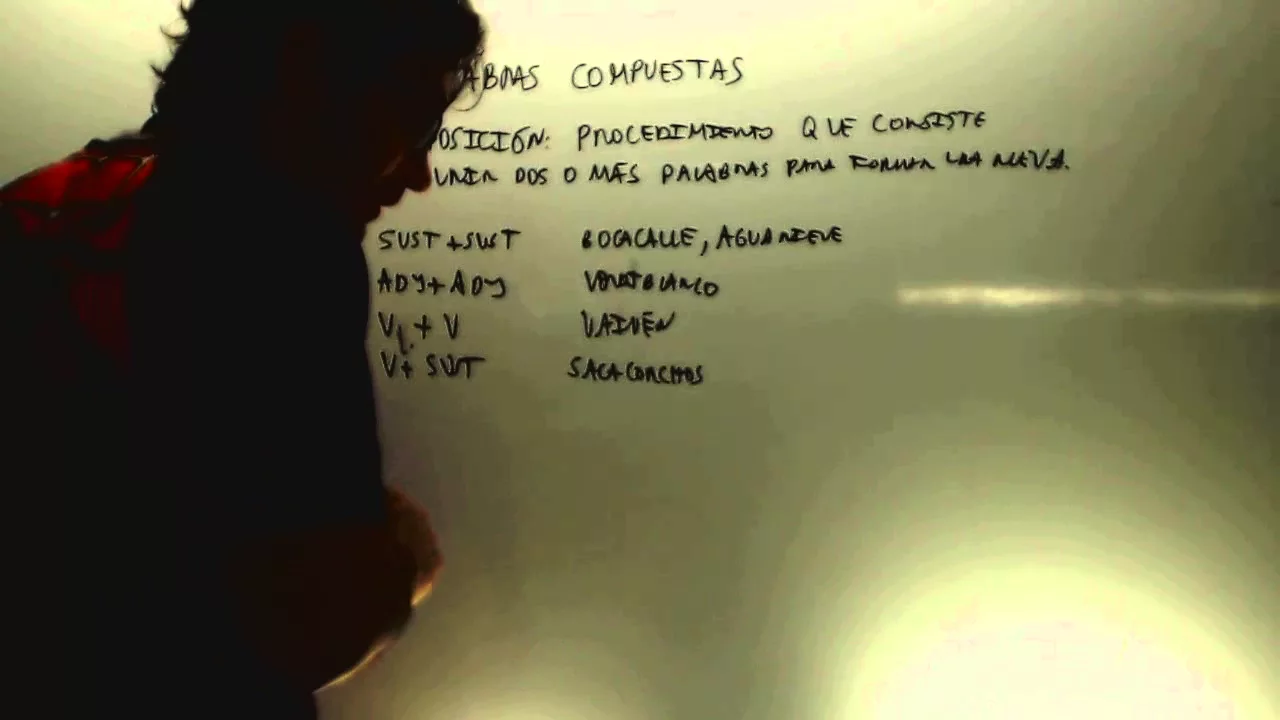 ABRAS COMPUESTAS
OSICIÓN: PROCEDIMIENTO QUE CONSISTE
UNIR DOS O MÁS PALABRAS PARA FORMAR UNA NUEVA.
SUST + SUST BOCACALLE, AGUANIEVE
ADJ + ADJ VERDIBLANCO
V + V VAIVÉN
V + SUST SACACORCHOS